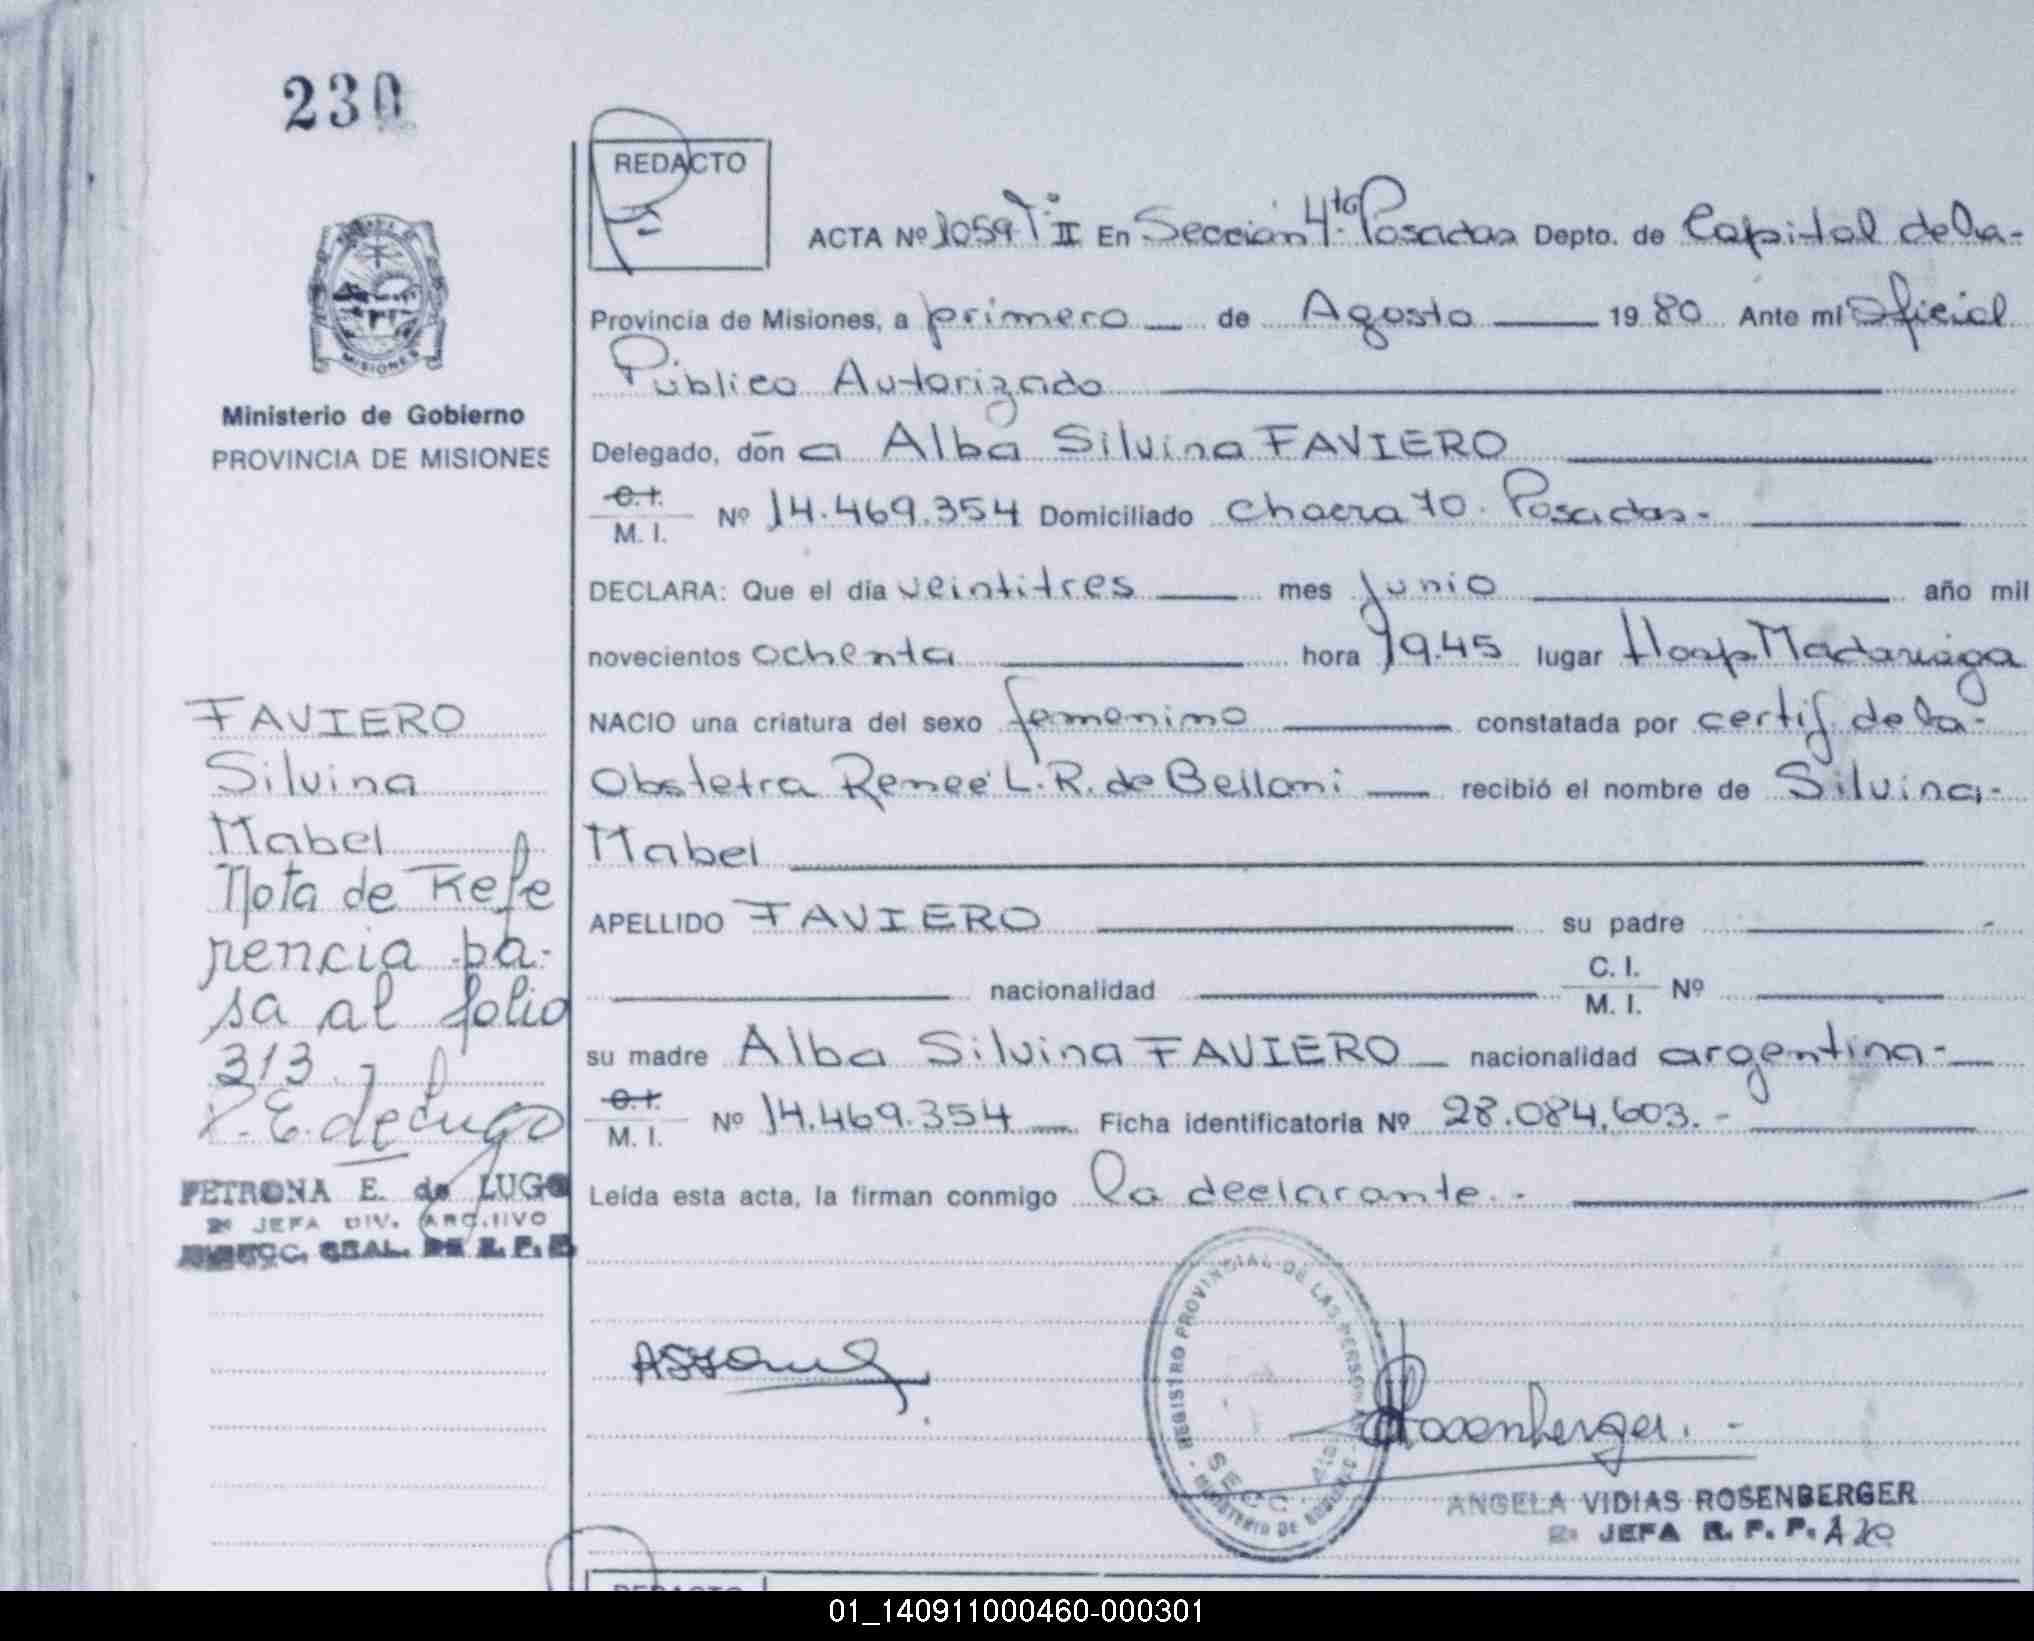 230
REDACTO
ACTA Nº 1059 Tº II En Sección 4ta. Posadas Depto. de Capital de la-
Provincia de Misiones, a primero de Agosto 1980 Ante mi Oficial
Público Autorizado
Delegado, don a Alba Silvina FAVIERO
C.I.
M. I. Nº 14.469.354 Domiciliado Chacra 70. Posadas-
DECLARA: Que el día veintitres mes Junio año mil
novecientos ochenta hora 19.45 lugar Hosp Madariaga
NACIO una criatura del sexo femenino constatada por certif. de la-
Obstetra Reneé L. R. de Belloni recibió el nombre de Silvina-
Mabel
APELLIDO FAVIERO su padre
nacionalidad C. I.
M. I. Nº
su madre Alba Silvina FAVIERO nacionalidad argentina-
C.I.
M. I. Nº 14.469.354 Ficha identificatoria Nº 28.084.603.-
Leída esta acta, la firman conmigo la declarante.-
MISIONES
Ministerio de Gobierno
PROVINCIA DE MISIONES
FAVIERO
Silvina
Mabel
Nota de Refe
rencia pa-
sa al folio
313.-
P. E. de Lugo
PETRONA E. de LUGO
2ª JEFA DIV. ARCHIVO
REGISTRO PROVINCIAL DE LAS PERSONAS
SECC. 4ta
MINISTERIO DE GOBIERNO
Rosenberger.-
ANGELA VIDIAS ROSENBERGER
2ª JEFA R. P. P.
REDACTO
01_140911000460-000301